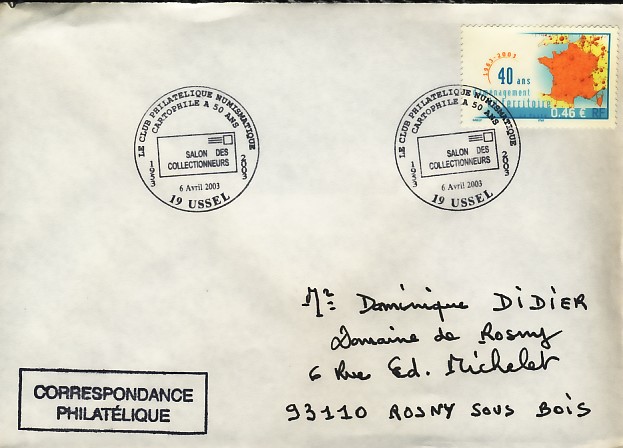 1963-2003
40 ans
aménagement
territoire
0.46 € RF
LE CLUB PHILATELIQUE NUMISMATIQUE
CARTOPHILE A 50 ANS
SALON DES
COLLECTIONNEURS
1953
2003
6 Avril 2003
19 USSEL
LE CLUB PHILATELIQUE NUMISMATIQUE
CARTOPHILE A 50 ANS
SALON DES
COLLECTIONNEURS
1953
2003
6 Avril 2003
19 USSEL
Mr Dominique DIDIER
Domaine de Rosny
6 Rue Ed. Michelet
93110 ROSNY SOUS BOIS
CORRESPONDANCE
PHILATÉLIQUE